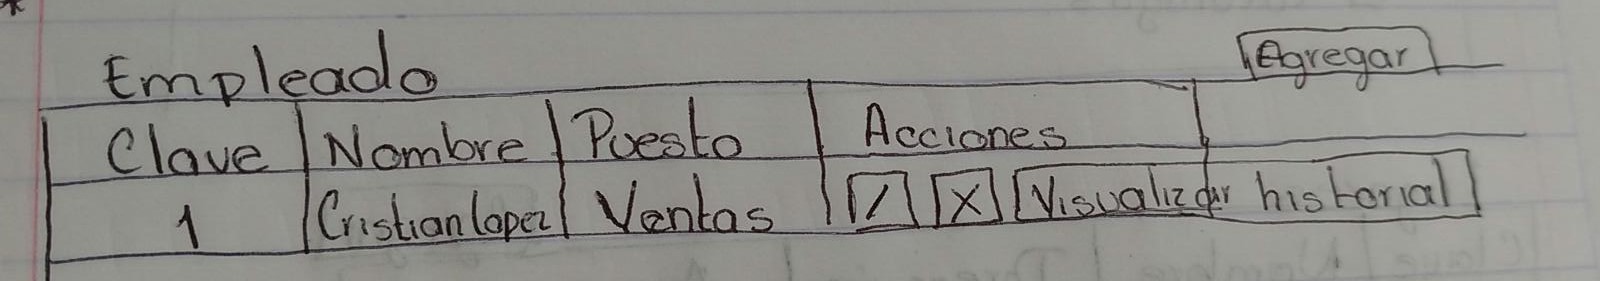 Empleado Agregar
Clave Nombre Puesto Acciones
1 Cristian lopez Ventas / X Visualizar historial